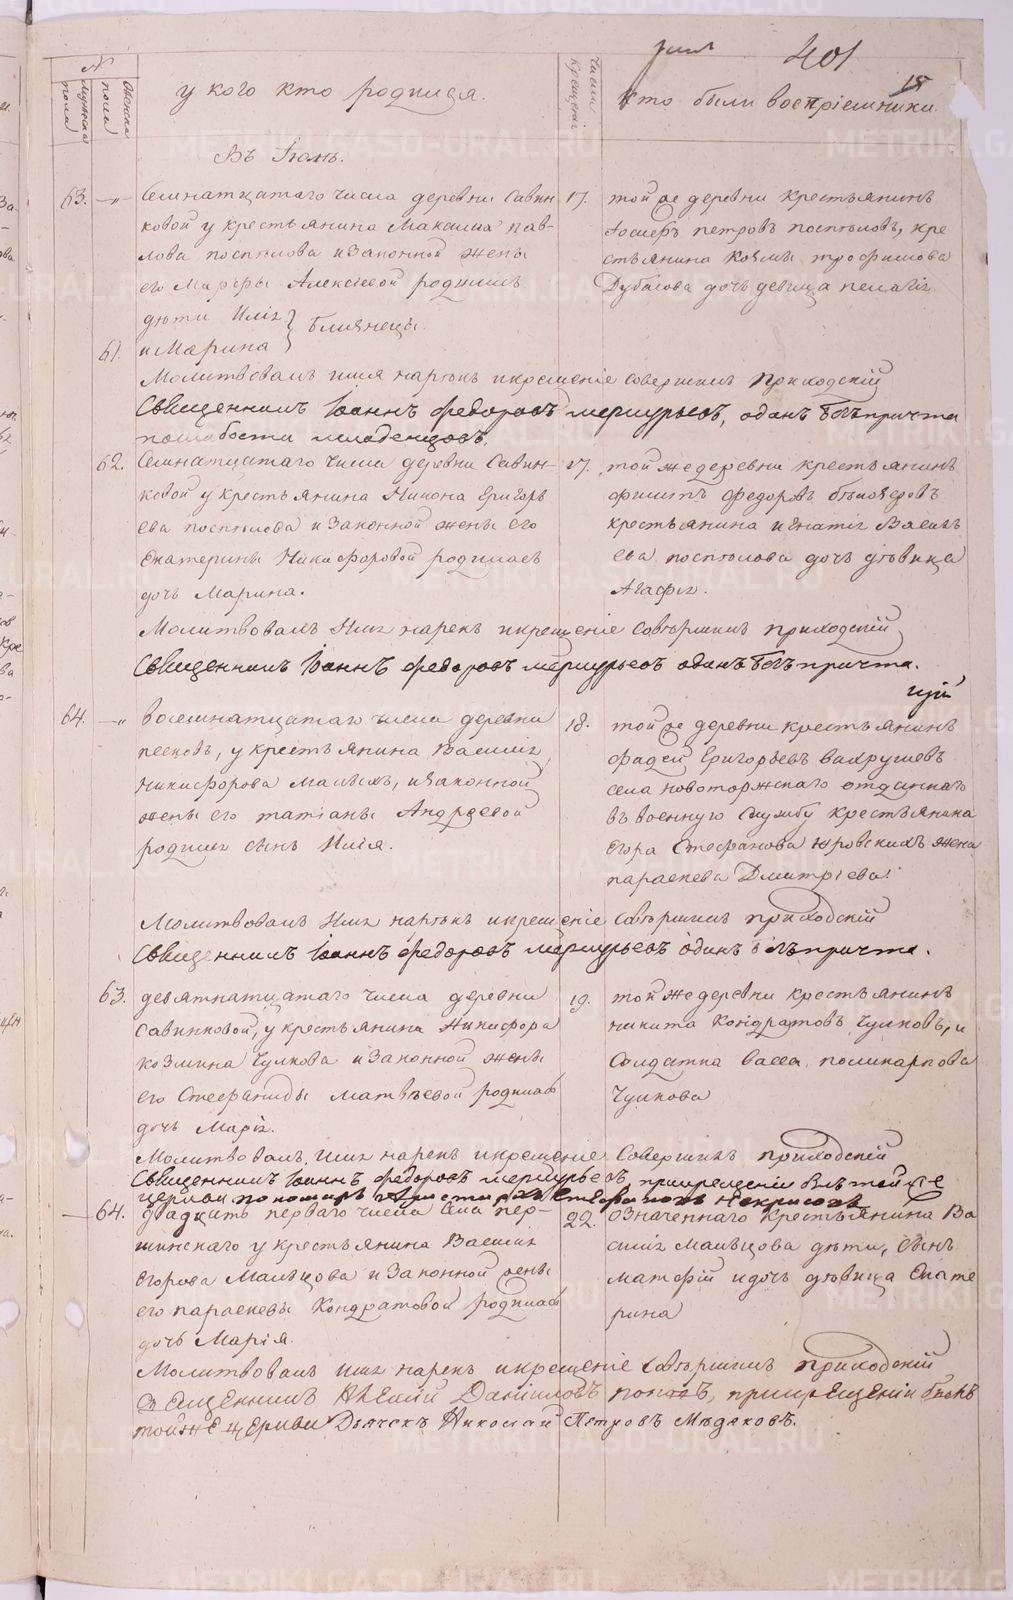 401
15
№
мужска пола
женска пола
у кого кто родился.
число крещенія
Кто были воспріемники.
Въ Іюнѣ.
63. —„— Семнатцатаго числа деревни Савин-
ковой у крестьянина Максима Пав-
лова Поспѣлова и законной жены
его Марѳы Алексіевой родились
дѣти Илія
61. и Марина } близнецы.
17. той же деревни крестьянинъ
Іосифъ Петровъ Поспѣловъ, кре
стьянина Козмы Трофимова
Дубасова дочь девица Пелагія
Молитвовалъ имя нарѣкъ и крещеніе совершилъ приходскій
Священникъ Іоаннъ Федоровъ Меркурьевъ, одинъ безъ причта
по слабости младенцовъ.
62. Семнатцатаго числа деревни Савин-
ковой у крестьянина Никона Григорь
ева Поспѣлова и законной жены его
Екатерины Никифоровой родилась
дочь Марина.
17. той же деревни крестьянинъ
Филипъ Федоровъ Бѣлозеровъ
крестьянина Игнатія Василь
ева Поспѣлова дочь дѣвица
Агафія.
Молитвовалъ имя нарекъ и крещеніе совѣршилъ приходскій
Священникъ Іоаннъ Федоровъ Меркурьевъ одинъ безъ причта.
64. —„ восемнатцатаго числа деревни
Песковъ, у крестьянина Василія
Никифорова Малыхъ, и законной
жены его Татіаны Андреевой
родился сынъ Илія.
18. той же деревни крестьянинъ
Фадей Григорьевъ Вахрушевъ
села Новоторжскаго отданнаго
въ военную службу крестьянина
Егора Стефанова Юровскихъ жена
Параскева Дмитріева.
Молитвовалъ имя нарѣкъ и крещеніе совѣршилъ приходскій
Священникъ Іоаннъ Федоровъ Меркурьевъ одинъ безъ причта.
63. девятнатцатаго числа деревни
Савинковой, у крестьянина Никифора
Козмина Чулкова и законной жены
его Стефаниды Матвѣевой родилась
дочь Марія.
19. той же деревни крестьянинъ
Никита Кондратовъ Чулковъ, и
Солдатка Васса Поликарпова
Чулкова
Молитвовалъ, имя нарекъ и крещеніе совершилъ приходскій
Священникъ Іоаннъ Федоровъ Меркурьевъ, при крещеніи былъ той же
церкви пономарь Некрасовъ
64. двадцать перваго числа села Пер-
шинскаго у крестьянина Василія
Егорова Мальцова и законной жены
его Параскевы Кондратовой родилась
дочь Марія.
22. означеннаго крестьянина Ва
силія Мальцова дѣти, сынъ
Матфій и дочь дѣвица Екате
рина
Молитвовалъ имя нарекъ и крещеніе совѣршилъ приходскій
Священникъ Алексій Даніиловъ Поповъ, при крещеніи былъ
той же церкви Дьячекъ Николай Петровъ Мѣдяковъ.
METRIKI.GASO-URAL.RU